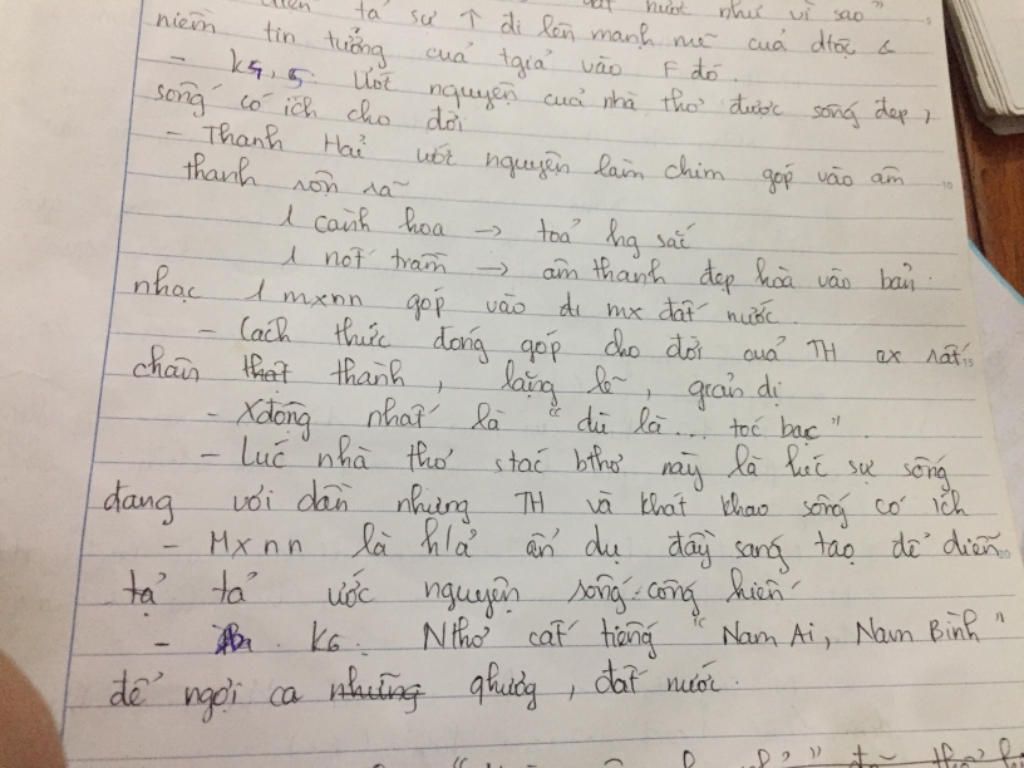 diễn tả sự ↑ đi lên mạnh mẽ của dtộc &
đất nước như vì sao"
niềm tin tưởng cuả tgiả vào F đó.
- K4, 5: Ước nguyện cuả nhà thơ được sống đẹp,
sống có ích cho đời
- Thanh Hải ước nguyện làm chim góp vào âm
thanh rộn rã
1 cành hoa → toả hg sắc
1 nốt trầm → âm thanh đẹp hoà vào bản
nhạc 1 mxnn góp vào đi mx đất nước.
- Cách thức đóng góp cho đời cuả TH ox rất
chân that thành, lặng lẽ, giản dị
- Xđộng nhất là "dù là... tóc bạc"
- Lúc nhà thơ stác bthơ này là lúc sự sống
đang vơi dần nhưng TH và khát khao sống có ích
- Mxnn là h/ả ẩn dụ đầy sang tạo để diễn
tạ tả ước nguyện sống cống hiến
- K6: Nthơ cất tiếng "Nam Ai, Nam Bình"
để ngợi ca những qhương, đất nước.